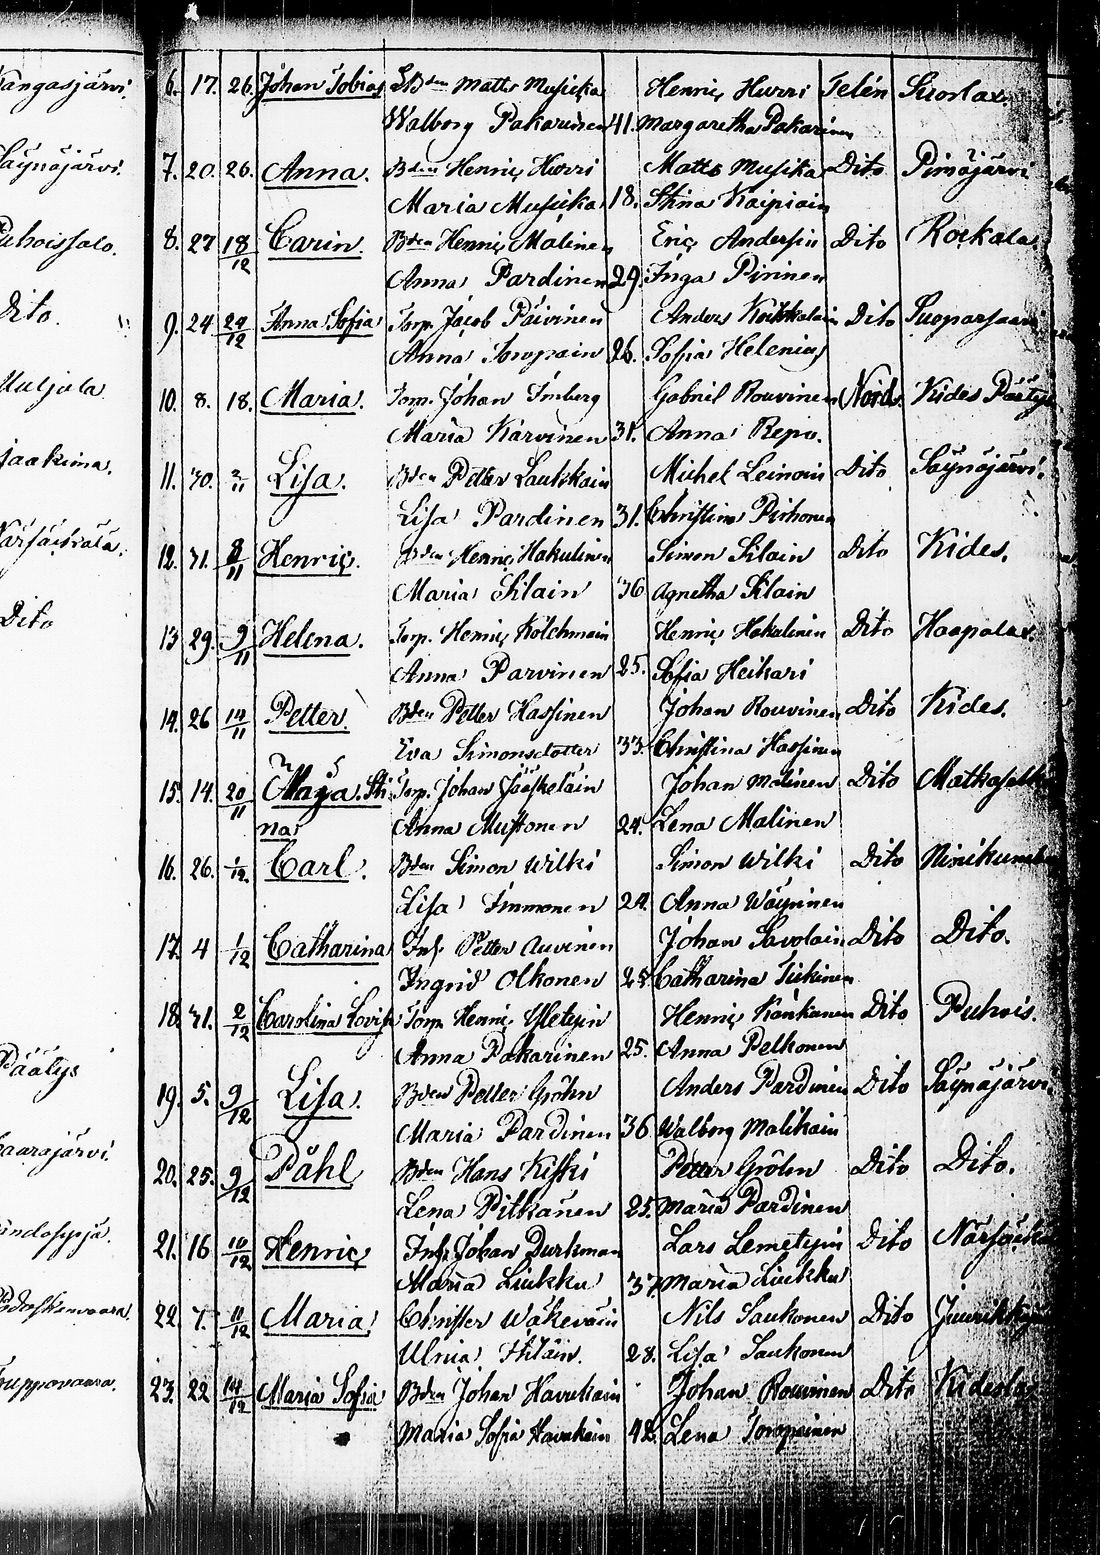 Kangasjärvi.
Säynäjärvi.
Puhoissalo.
Dito.
Muljula
Jaakima.
Närsäkkälä.
Dito
Päätys
vaarajärvi.
6. 17. 26. Johan Tobias SBden Matts Musicka Henric Hurri Telén Suorlax.
Walborg Pakarinen 41. Margaretha Pakarinen
7. 20. 26. Anna. Bden Henric Hurri Matts Musika Dito Pimäjärvi
Maria Musicka 18. Stina Kaipiain
8. 27 18/12 Carin. Bden Henric Malinen Eric Andersin Dito Rockala.
Anna Pardinen 29. Inga Pirinen
9. 24 24/12 Anna Sofia Torp. Jacob Päivinen Anders Koikkalain Dito Suoparsaari
Anna Soropain 26. Sofia Helenius
10. 8. 18. Maria. Torp. Johan Imberg Gabriel Rouvinen Nord. Kides Päätys
Maria Karvinen 31. Anna Repo.
11. 30. 3/11 Lisa. Bden Petter Laukkain Michel Leinoin Dito Säynäjärvi.
Lisa Pardinen 31. Christina Pirhonen
12. 31. 8/11 Henric. Bden Henric Hakulinen Simon Silain Dito Kides.
Maria Silain 36 Agnetha Silain
13 29. 9/11 Helena. Torp. Henric Kolehmain Henric Hakulinen Dito Haapalax.
Anna Parvinen 25. Sofia Heikari
14. 26 14/11 Petter. Bden Petter Hassinen Johan Rouvinen Dito Kides.
Eva Simonsdotter 33. Christina Hassinen
15. 14. 20/11 Maja. Sti- Torp. Johan Jääskeläin Johan Malinen Dito Matkaselkä
na. Anna Mustonen 24. Lena Malinen
16. 26. 1/12. Carl. Bden Simon Wilki Simon Wilki Dito Niinikumbu
Lisa Immonen 24. Anna Wäyrinen
17. 4 1/12 Catharina Inh. Petter Auvinen Johan Savolain Dito Dito.
Ingrid Olkonen 25. Catharina Tiikinen
18. 31. 2/12 Carolina Lovisa Torp. Henric Henric Känkänen Dito Puhois.
Anna Pakarinen 25. Anna Pelkonen
19. 5. 9/12 Lisa. Bden Petter Gröhn Anders Pardinen Dito Säynäjärvi.
Maria Pardinen 36 Walborg Malikain
20. 25. 9/12 Påhl Bden Hans Kiski Petter Gröhn Dito Dito.
Lena Pitkänen 25. Maria Pardinen
21. 16 10/12 Henric Inh. Johan Durkman Lars Lemetyin Dito Närsäkkä
Maria Liukku 37 Maria Liukku
22. 7. 11/12 Maria Christer Wäkeväin Nils Saukonen Dito
Ulrica Silain. 28. Lisa Saukonen
23. 22 14/12 Maria Sofia Bden Johan Havukain Johan Rouvinen Dito Kideslax
Maria Sofia Havukain 42. Lena Soropainen